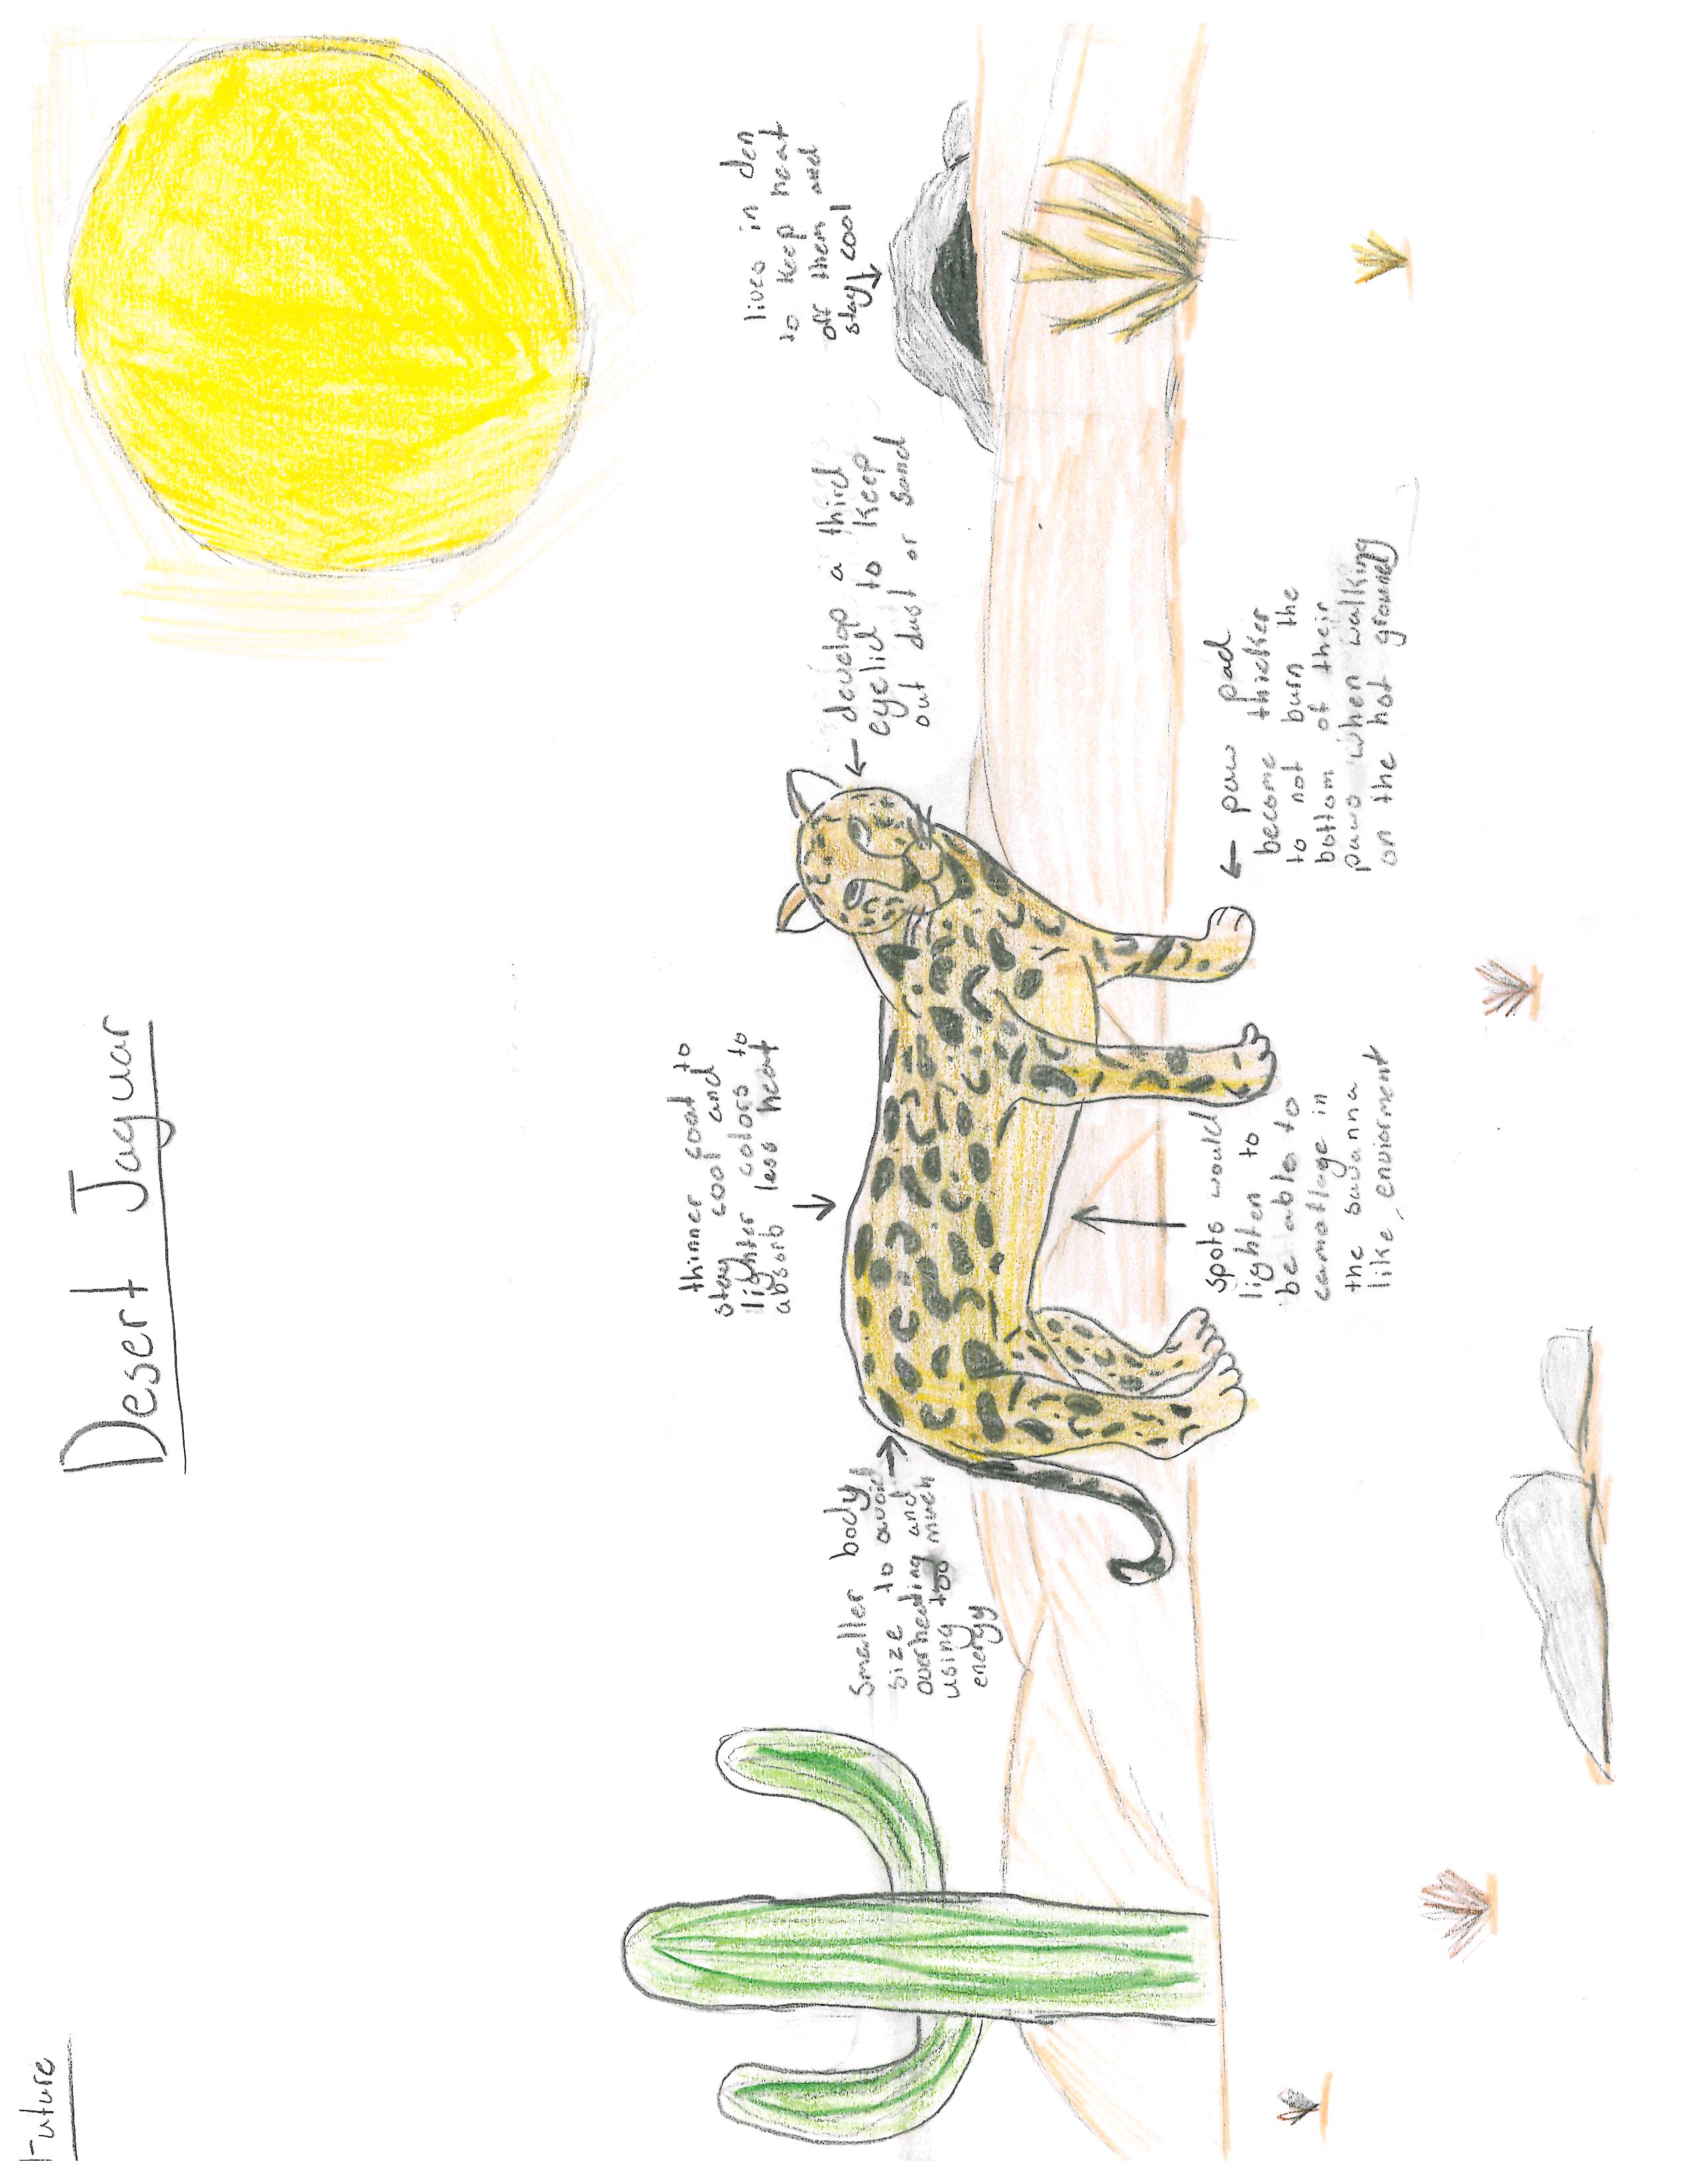 Future
Desert Jaguar
lives in den
to keep heat
off them and
stay cool
thinner coat to
stay cool and
lighter colors to
absorb less heat
develop a third
eyelid to keep
out dust or sand
smaller body
size to avoid
overheating and
using too much
energy
paw pad
become thicker
to not burn the
bottom of their
paws when walking
on the hot ground
spots would
lighten to
be able to
camoflage in
the savanna
like enviorment